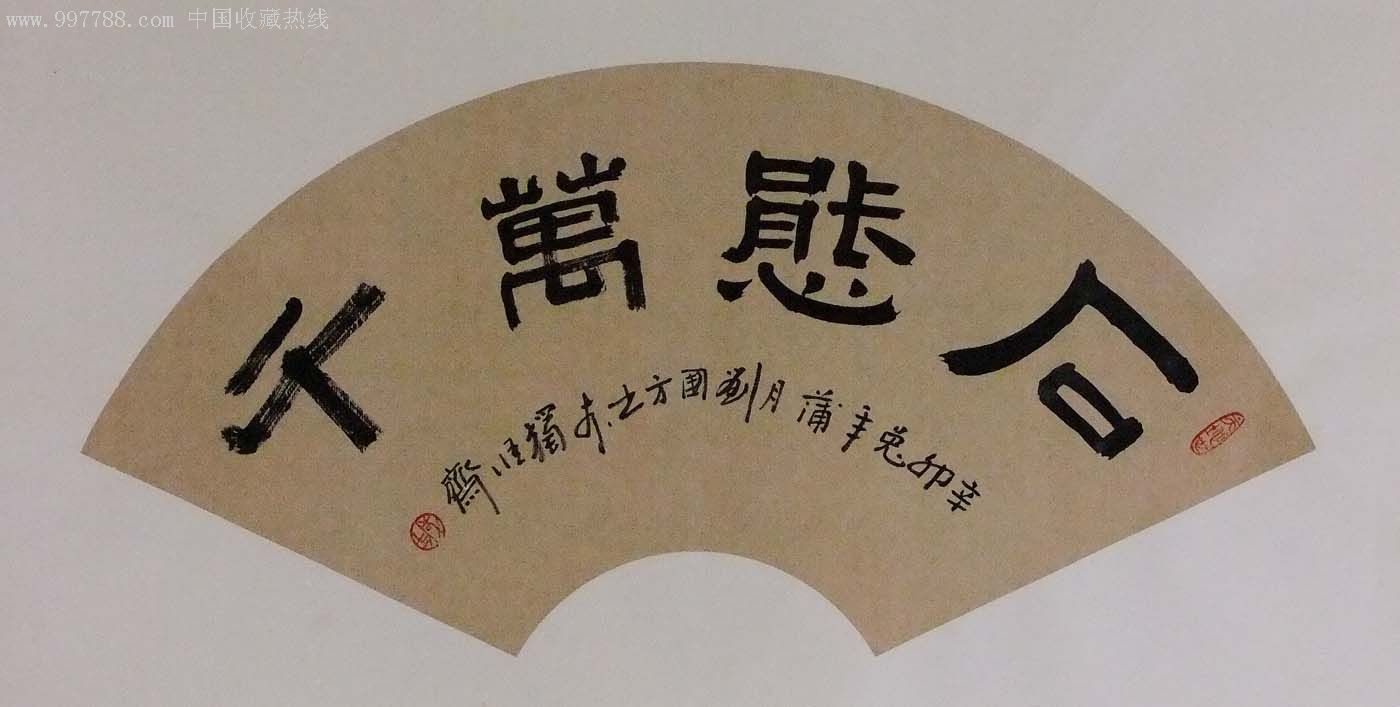 www.997788.com 中国收藏热线
石態萬千
辛卯兔年蒲月劉国方 獨 齋